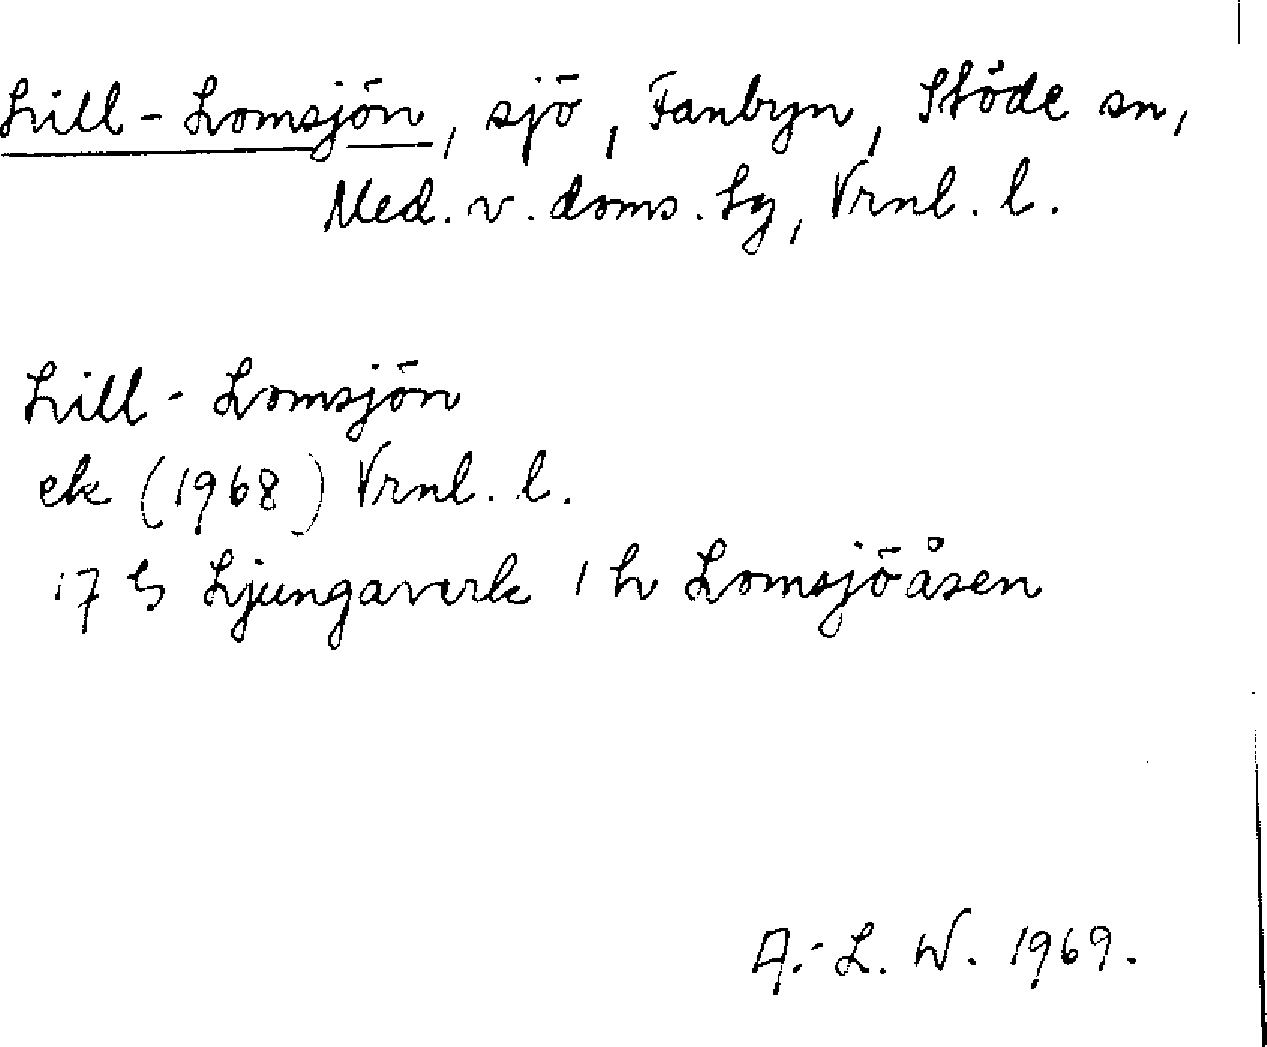 Lill-Lomsjön, sjö, Fanbyn, Stöde sn,
Med. v. doms. sg, Vrnl. l.
Lill-Lomsjön
ek (1968) Vrnl. l.
17 G Ljungaverk 1 h Lomsjöåsen
A.-L. W. 1969.